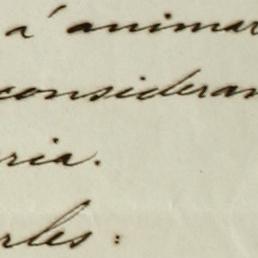 á animar
consideran
ria.
rles: